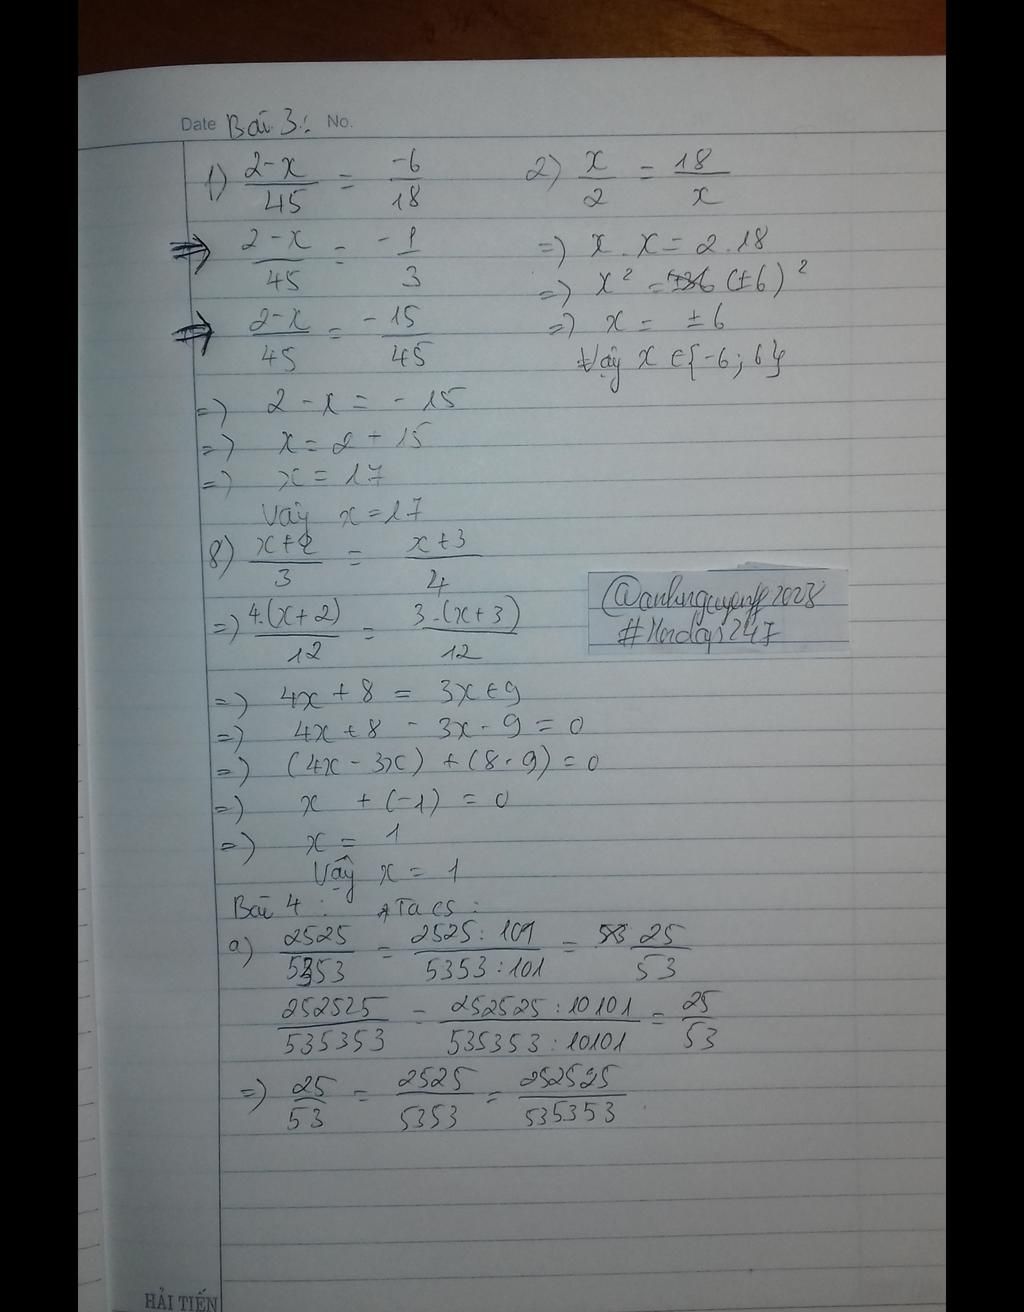 Date Bài 3: No.
1) (2-x)/45 = -6/18
=> (2-x)/45 = -1/3
=> (2-x)/45 = -15/45
=> 2 - x = -15
=> x = 2 + 15
=> x = 17
Vậy x = 17
2) x/2 = 18/x
=> x . x = 2 . 18
=> x² = (±6)²
=> x = ±6
Vậy x ∈ {-6; 6}
8) (x+2)/3 = (x+3)/4
=> 4.(x+2)/12 = 3.(x+3)/12
=> 4x + 8 = 3x + 9
=> 4x + 8 - 3x - 9 = 0
=> (4x - 3x) + (8 - 9) = 0
=> x + (-1) = 0
=> x = 1
Vậy x = 1
@anhnguyen 2028
#Hoidap247
Bài 4: Ta có:
a) 2525/5353 = 2525:101/5353:101 = 25/53
252525/535353 = 252525:10101/535353:10101 = 25/53
=> 25/53 = 2525/5353 = 252525/535353
HẢI TIẾN